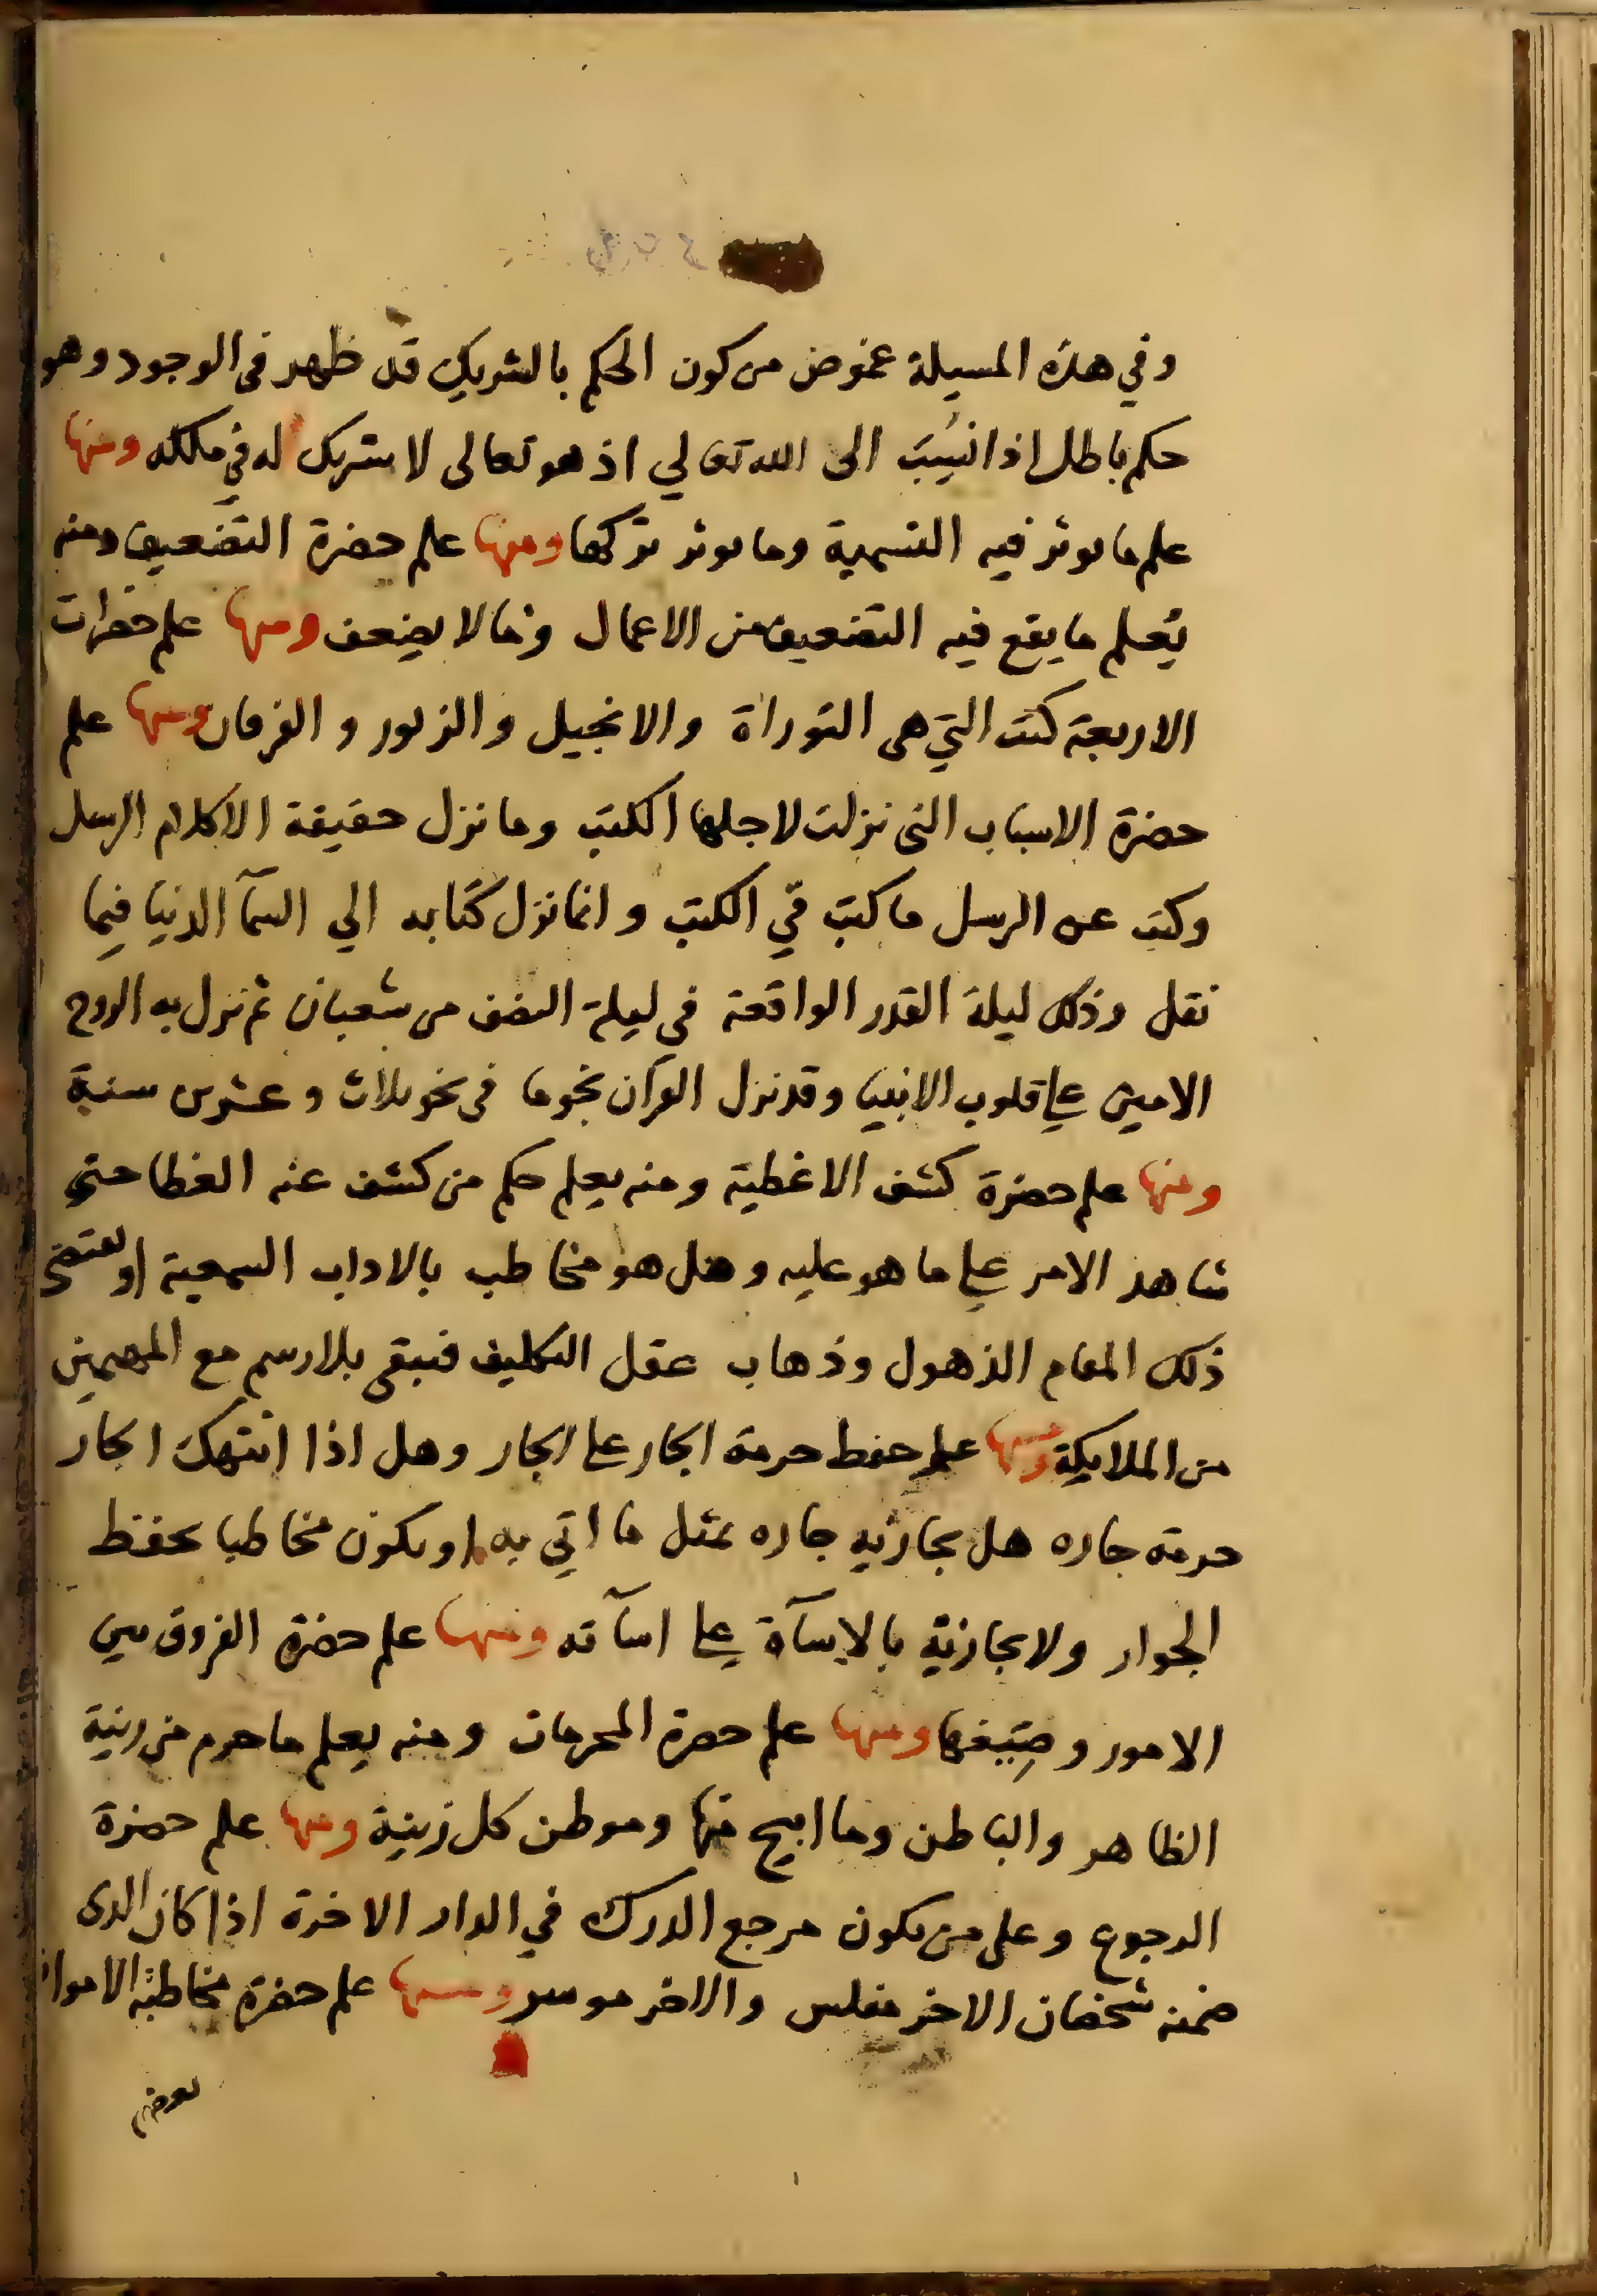 وفي هذه المسيلة غموض من كون الحكم بالشريك قد ظهر في الوجود وهو
حكم باطل اذا نسب الى الله تعالي اذ هو تعالى لا شريك له في ملكه ومنها
علم ما يوثر فيه التسمية وما يوثر تركها ومنها علم حضرة التضعيف ومنه
يعلم ما يقع فيه التضعيف من الاعمال وما لا يضعف ومنها علم حضرات
الاربعة كتب التي هي التوراة والانجيل والزبور والفرقان ومنها علم
حضرة الاسباب التي نزلت لاجلها الكتب وما نزل حقيقة الا كلام الرسل
وكتب عن الرسل ما كتب في الكتب وانما نزل كتابه الي السمآ الدنيا فيما
نقل وذلك ليلة القدر الواقعة في ليلة النصف من شعبان ثم نزل به الروح
الامين علي قلوب الانبيا وقد نزل القرآن نجوما في نحو ثلاث وعشرين سنة
ومنها علم حضرة كشف الاغطية ومنه يعلم حكم من كشف عنه الغطا حتي
شاهد الامر علي ما هو عليه وهل هو مخاطب بالاداب السمعية او يقتضي
ذلك المقام الذهول وذهاب عقل التكليف فيبقى بلا رسم مع المهيمين
من الملايكة ومنها علم حفظ حرمة الجار على الجار وهل اذا انتهك الجار
حرمة جاره هل يجازيه جاره بمثل ما اتي به او يكون مخاطبا بحفظ
الجوار ولا يجازيه بالاسآة علي اسآته ومنها علم حضرة الفروق بين
الامور وصيغها ومنها علم حضرة المحرمات ومنه يعلم ما حرم من زينة
الظاهر والباطن وما ابيح منها وموطن كل زينة ومنها علم حضرة
الرجوع وعلى من يكون مرجع الدرك في الدار الاخرة اذا كان الذي
ضمنه شخصان الاخر مفلس والاخر موسر ومنها علم حضرة مخاطبة الاموات